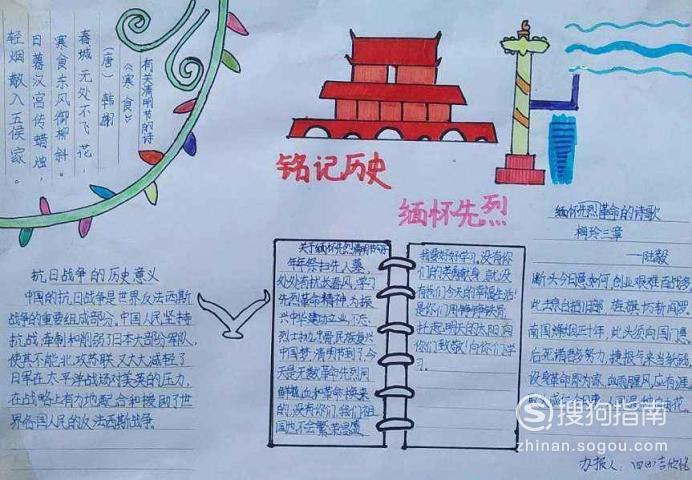 有关清明节的诗
《寒食》
(唐) 韩翃
春城无处不飞花，
寒食东风御柳斜。
日暮汉宫传蜡烛，
轻烟散入五侯家。
铭记历史
缅怀先烈
抗日战争的历史意义
中国的抗日战争是世界反法西斯
战争的重要组成部分。中国人民坚持
抗战，牵制和削弱了日本大部分军队，
使其不能北攻苏联，又大大减轻了
日军在太平洋战场对美英的压力，
在战略上有力地配合和援助了世
界各国人民的反法西斯战争。
关于缅怀先烈清明节
年年祭扫先人墓，
处处有扰长春风，学习
先烈革命精神为振
兴中华建功立业，不忘
烈士
民族复兴
中国梦，清明节到了，今
天是无数革命先烈用
鲜血和革命换来
的，没有你们，我们祖
国也不会繁荣昌盛
我要好好学习。没有你
们的英勇献身，就没
有我们今天的幸福生活！
是你们用
托起明天的太阳，向
你们致敬！向你们学
习。
缅怀先烈革命的诗歌
梅岭三章
断头今日意如何，创业艰难百战多。
此去泉台招旧部，旌旗
南国烽烟正十年，此头须向国门悬。
后死诸君多努力，捷报飞来当纸钱。
革命即为家，血雨腥风应有涯
人间遍种自由花。
办报人：四
搜狗指南
zhinan.sogou.com